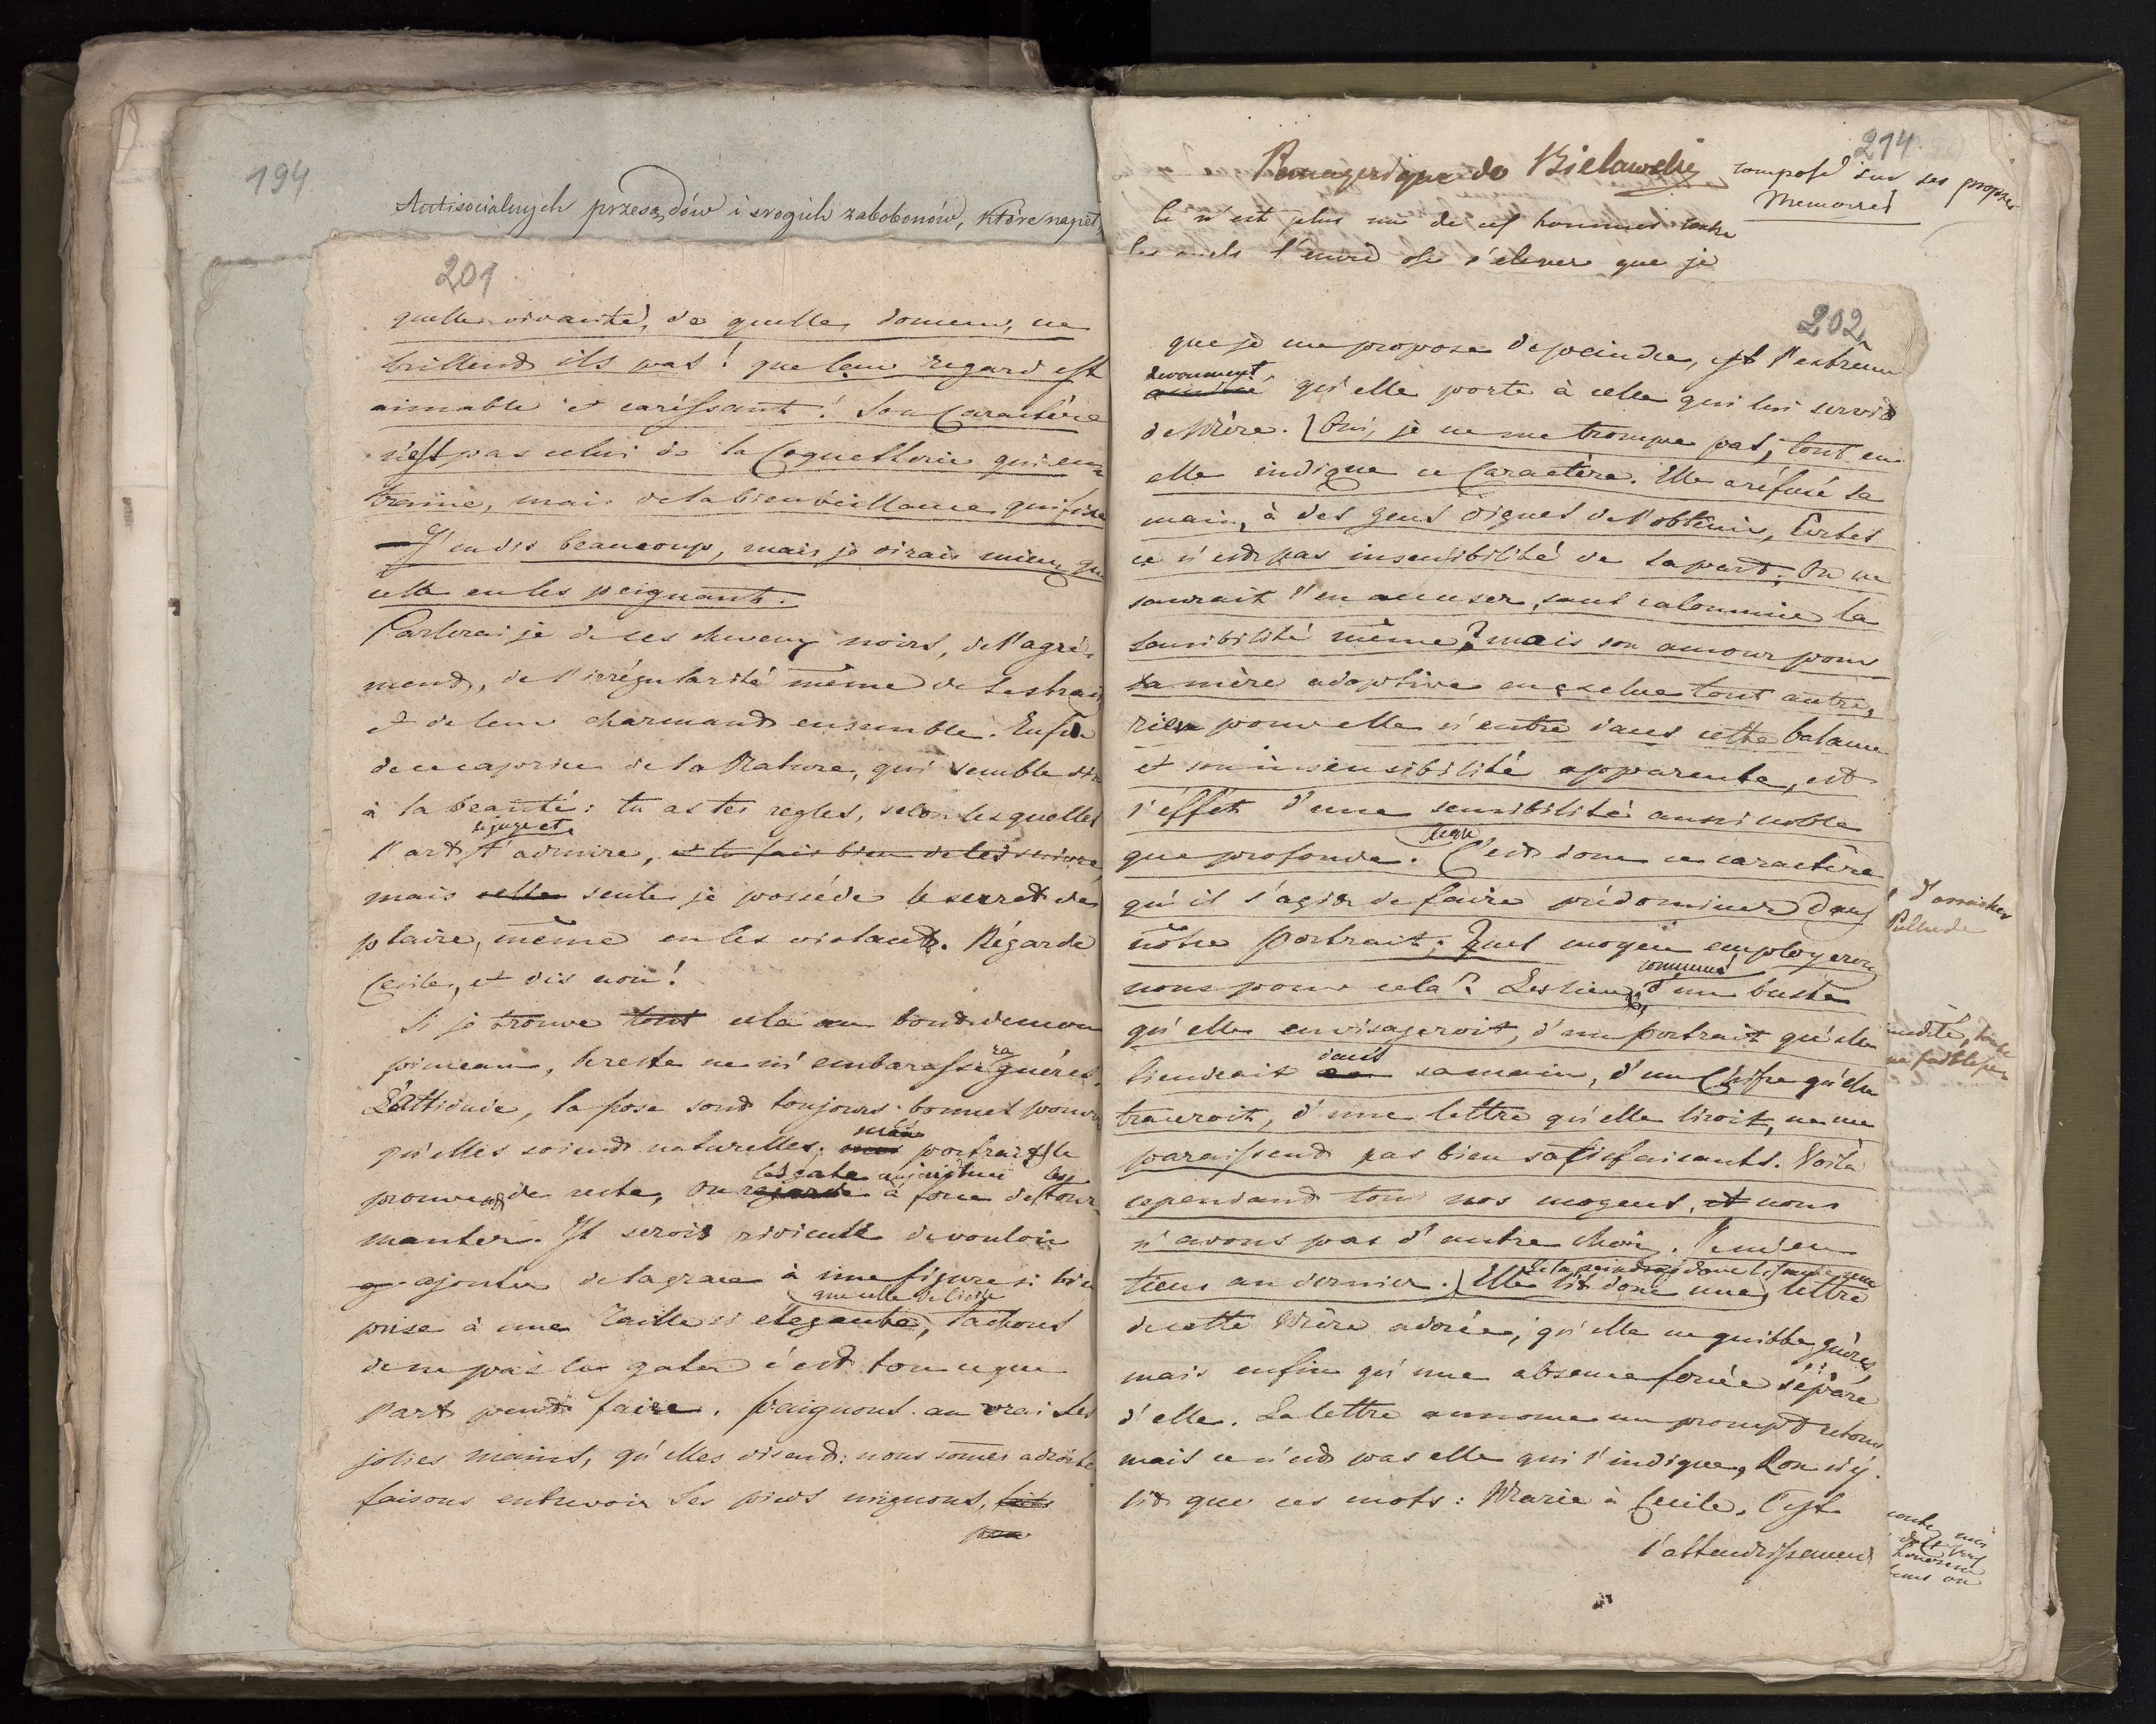 194
Antisocialnych przesądów i srogich zabobonów, które napet
201
quelle vivacité, de quelle douceur, ne
brillend ils pas! que leur regard est
aimable et caressant! Son Caractère
n'est pas celui de la Coquetterie qui en
traine, mais de la bienveillance qui fixe
J'en dis beaucoup, mais je dirais mieux que
cela en les peignant.
Parlerai je de ces cheveux noirs, de l'agré-
mend, de l'irrégularité même de ses traits
et de leur charmand ensemble. Enfin
de ce caprice de la Nature, qui semble dire
à la beauté: tu as tes regles, selon lesquelles
te juge et
l'art t'admire, et tu fais bien de les suivre,
mais celle seule je possède le secret de
plaire, même en les violant. Régarde
Cecile, et dis non!
Si je trouve tout cela au bout de mon
pinceau, le reste ne m'embarassera guéres.
L'Attidude, la pose sond toujours bonnes pourvu
qu'elles soiend naturelles. mes portraits le
prouvent de reste, on les gate aujourd'hui à force de les tour
manter. Il seroit ridicule de vouloir
ajouter de la grace à une figure si bien
que celle de Cecile
prise à une Taille si élégante, tachons
de ne pas la gater c'est tou ce que
l'art peud faire. Paignons au vrai ses
jolies mains, qu'elles disend: nous sommes adroites
faisons entrevoir ses pieds mignons, faits
pour
214
Panagerique de Bielawski composé sur ses propres
Memoires
Ce n'est plus un de ces hommes contre
les quels l'envie ose s'elever que je
202
que je me propose de peindre, est l'extrême
devoument qu'elle porte à celle qui lui servit
de Mère. Oui, je ne me trompe pas, tout en
elle indique ce Caractère. Elle a réfusé sa
main, à des gens dignes de l'obtenir, Certes
ce n'est pas insensibilité de sa part; On ne
saurait l'en accuser, sans calomnier la
sensibilité même? mais son amour pour
sa mère adoptive en exclue tout autre,
rien pour elle n'entre dans cette balance
et son insensibilité apparente, est
l'éffêt d'une sensibilité aussi noble
que profonde. C'est donc ce caractère
qu'il s'agit de faire prédominer dans
nôtre portrait. Quel moyen employerons
nous pour cela? Les lieux communs d'un buste
qu'elle envisageroit, d'un portrait qu'elle
tiendrait dans sa main, d'un Chifre qu'elle
traceroit, d'une lettre qu'elle liroit, ne me
paraissend pas bien satisfaisants. Voilà
cependand tous nos moyens, et nous
n'avons pas d'autre choix. Je m'en
tiens au dernier. Elle lit donc une lettre
de cette Mère adorée, qu'elle ne quitte guères,
mais enfin qu'une absence forcée sépare
d'elle. La lettre annonce un prompt retour
mais ce n'est pas elle qui l'indique, l'on n'y
lit que ces mots: Marie à Cecile. C'est
l'attendrissemend